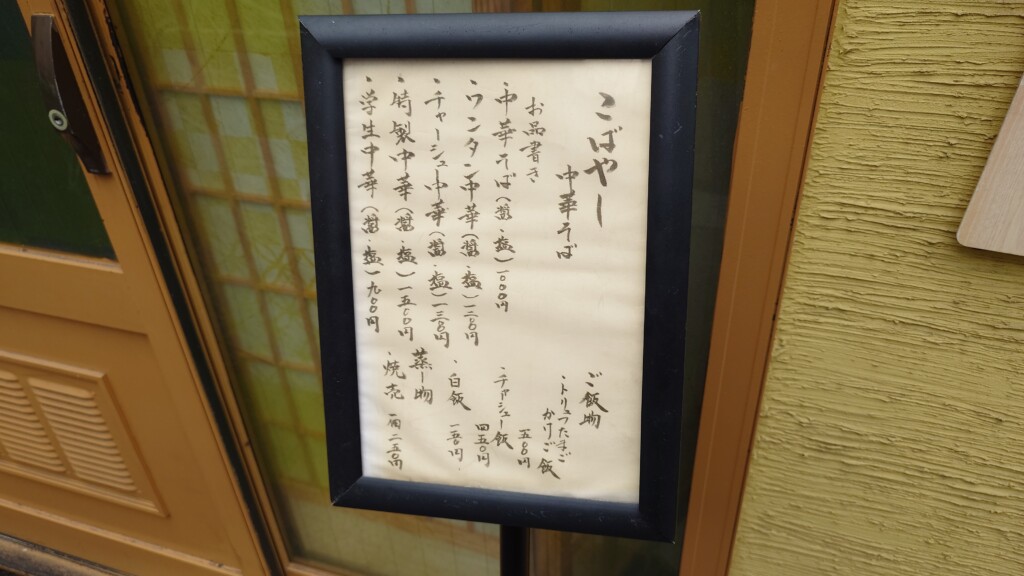 こばやし
中華そば
お品書き
・中華そば(醤・塩)一〇〇〇円
・ワンタン中華(醤・塩)一二〇〇円
・チャーシュー中華(醤・塩)一三〇〇円
・特製中華(醤・塩)一五〇〇円
・学生中華(醤・塩)九〇〇円
ご飯物
・トリュフたまご
かけご飯
五〇〇円
・チャーシュー飯
四五〇円
・白飯
一五〇円
蒸し物
・焼売
一個二二〇円